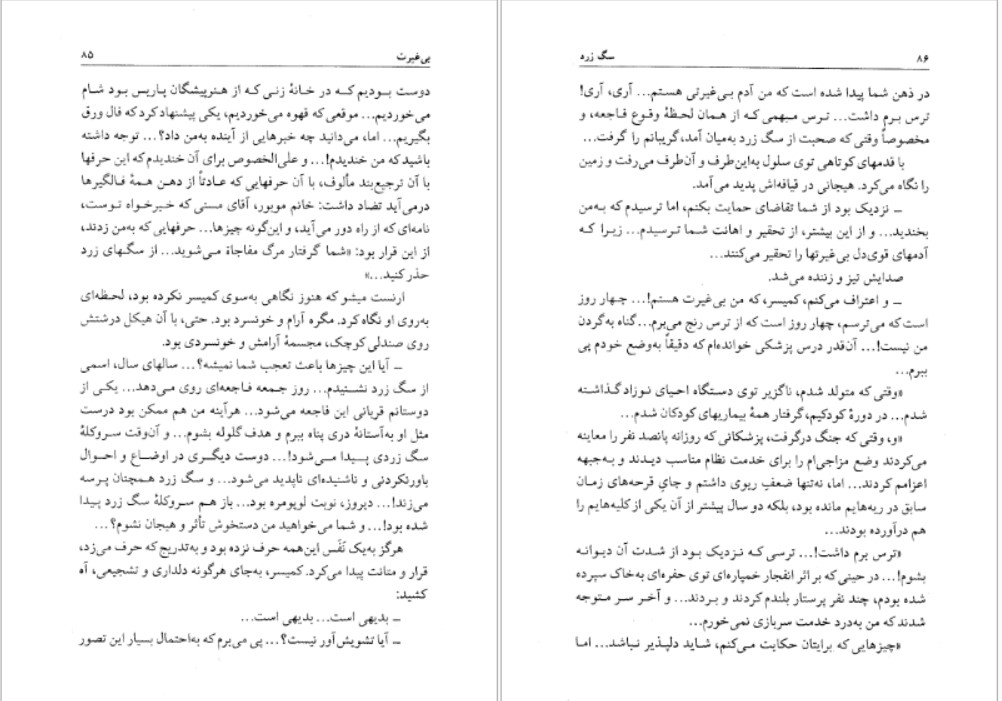 بی‌غیرت ۸۵
دوست بودیم که در خانهٔ زنی که از هنرپیشگان پاریس بود شام
می‌خوردیم... موقعی که قهوه می‌خوردیم، یکی پیشنهاد کرد که فال ورق
بگیریم... اما، می‌دانید چه خبرهایی از آینده به‌من داد؟... توجه داشته
باشید که من خندیدم!... و علی‌الخصوص برای آن خندیدم که این حرفها
با آن ترجیع‌بند مألوف، با آن حرفهایی که عادتاً از دهن همهٔ فالگیرها
درمی‌آید تضاد داشت: خانم موبور، آقای مسنی که خیرخواه توست،
نامه‌ای که از راه دور می‌آید، و این‌گونه چیزها... حرفهایی که به‌من زدند،
از این قرار بود: «شما گرفتار مرگ مفاجاة می‌شوید... از سگهای زرد
حذر کنید...»
ارنست میشو که هنوز نگاهی به‌سوی کمیسر نکرده بود، لحظه‌ای
به‌روی او نگاه کرد. مگره آرام و خونسرد بود. حتی، با آن هیکل درشتش
روی صندلی کوچک، مجسمهٔ آرامش و خونسردی بود.
ـ آیا این چیزها باعث تعجب شما نمیشه؟... سالهای سال، اسمی
از سگ زرد نشنیدم... روز جمعه فاجعه‌ای روی می‌دهد... یکی از
دوستانم قربانی این فاجعه می‌شود... هرآینه من هم ممکن بود درست
مثل او به‌آستانهٔ دری پناه ببرم و هدف گلوله بشوم... و آن‌وقت سروکلهٔ
سگ زردی پیدا می‌شود!... دوست دیگری در اوضاع و احوال
باورنکردنی و ناشنیده‌ای ناپدید می‌شود... و سگ زرد همچنان پرسه
می‌زند!... دیروز، نوبت لوپومره بود... باز هم سروکلهٔ سگ زرد پیدا
شده بود!... و شما می‌خواهید من دستخوش تأثر و هیجان نشوم؟...
هرگز به‌یک نَفَس این‌همه حرف نزده بود و به‌تدریج که حرف می‌زد،
قرار و متانت پیدا می‌کرد. کمیسر، به‌جای هرگونه دلداری و تشجیعی، آه
کشید:
ـ بدیهی است... بدیهی است...
ـ آیا تشویش‌آور نیست؟... پی می‌برم که به‌احتمال بسیار این تصور
۸۶ سگ زرد
در ذهن شما پیدا شده است که من آدم بی‌غیرتی هستم... آری، آری!
ترس برم داشت... ترس مبهمی که از همان لحظهٔ وقوع فاجعه، و
مخصوصاً وقتی که صحبت از سگ زرد به‌میان آمد، گریبانم را گرفت...
با قدمهای کوتاهی توی سلول به‌این‌طرف و آن‌طرف می‌رفت و زمین
را نگاه می‌کرد. هیجانی در قیافه‌اش پدید می‌آمد.
ـ نزدیک بود از شما تقاضای حمایت بکنم، اما ترسیدم که به‌من
بخندید... و از این بیشتر، از تحقیر و اهانت شما ترسیدم... زیرا که
آدمهای قوی‌دل بی‌غیرتها را تحقیر می‌کنند...
صدایش تیز و زننده می‌شد.
ـ و اعتراف می‌کنم، کمیسر، که من بی‌غیرت هستم!... چهار روز
است که می‌ترسم، چهار روز است که از ترس رنج می‌برم... گناه به‌گردن
من نیست!... آن‌قدر درس پزشکی خوانده‌ام که دقیقاً به‌وضع خودم پی
ببرم...
«وقتی که متولد شدم، ناگزیر توی دستگاه احیای نوزاد گذاشته
شدم... در دورهٔ کودکیم، گرفتار همهٔ بیماریهای کودکان شدم...
«و، وقتی که جنگ درگرفت، پزشکانی که روزانه پانصد نفر را معاینه
می‌کردند وضع مزاجی‌ام را برای خدمت نظام مناسب دیدند و به‌جبهه
اعزامم کردند... اما، نه‌تنها ضعفِ ریوی داشتم و جایِ قرحه‌های زمان
سابق در ریه‌هایم مانده بود، بلکه دو سال پیشتر از آن یکی از کلیه‌هایم را
هم درآورده بودند...
«ترس برم داشت!... ترسی که نزدیک بود از شدت آن دیوانه
بشوم!... در حینی که بر اثر انفجار خمپاره‌ای توی حفره‌ای به‌خاک سپرده
شده بودم، چند نفر پرستار بلندم کردند و بردند... و آخر سر متوجه
شدند که من به‌درد خدمت سربازی نمی‌خورم...
«چیزهایی که برایتان حکایت می‌کنم، شاید دلپذیر نباشد... اما